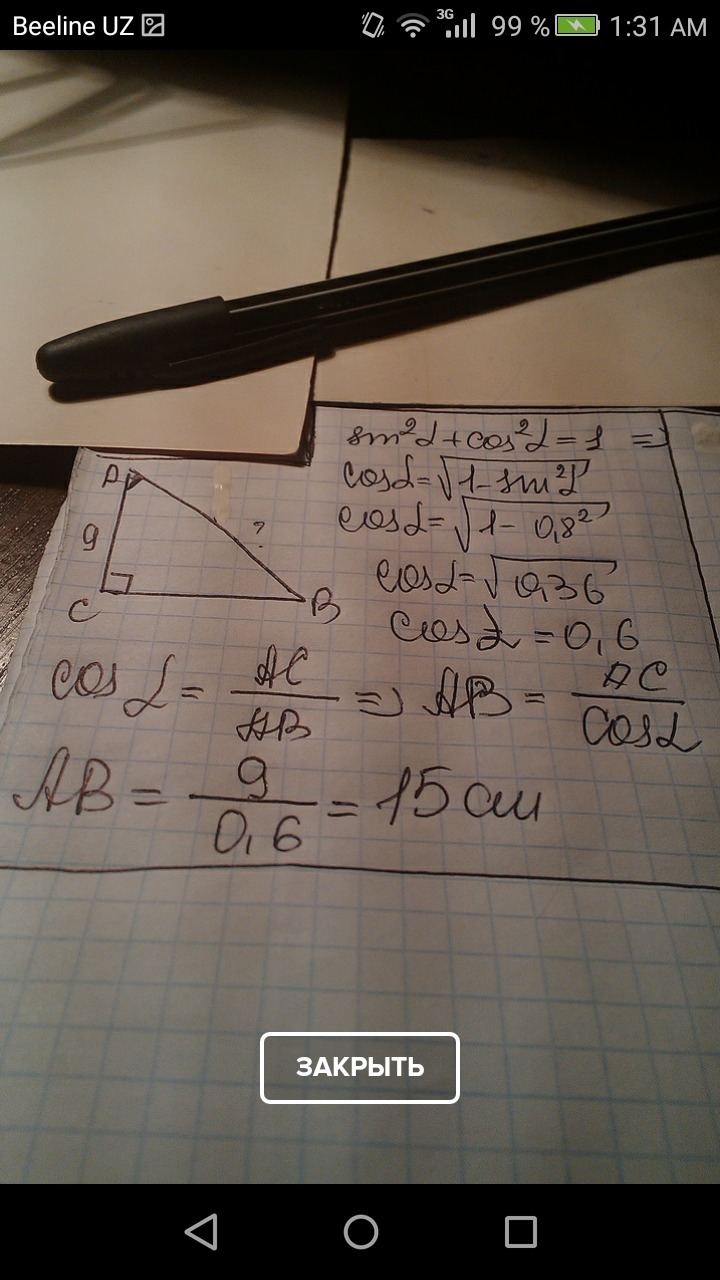 Beeline UZ 3G 99 % 1:31 AM
sin²α + cos²α = 1 =>
cosα = √1 - sin²α
cosα = √1 - 0,8²
cosα = √0,36
cosα = 0,6
A
9
?
C
B
cos α = AC / AB => AB = AC / cosα
AB = 9 / 0,6 = 15 см
ЗАКРЫТЬ